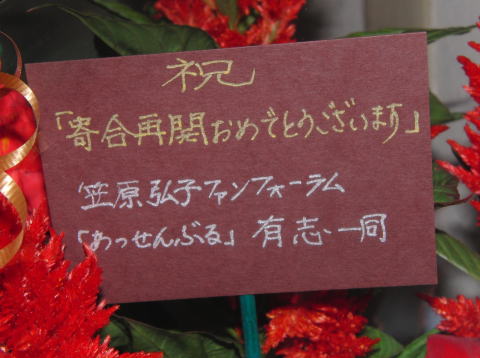 祝
「寄合再開おめでとうございます」
笠原弘子ファンフォーラム
「あっせんぶる」有志一同